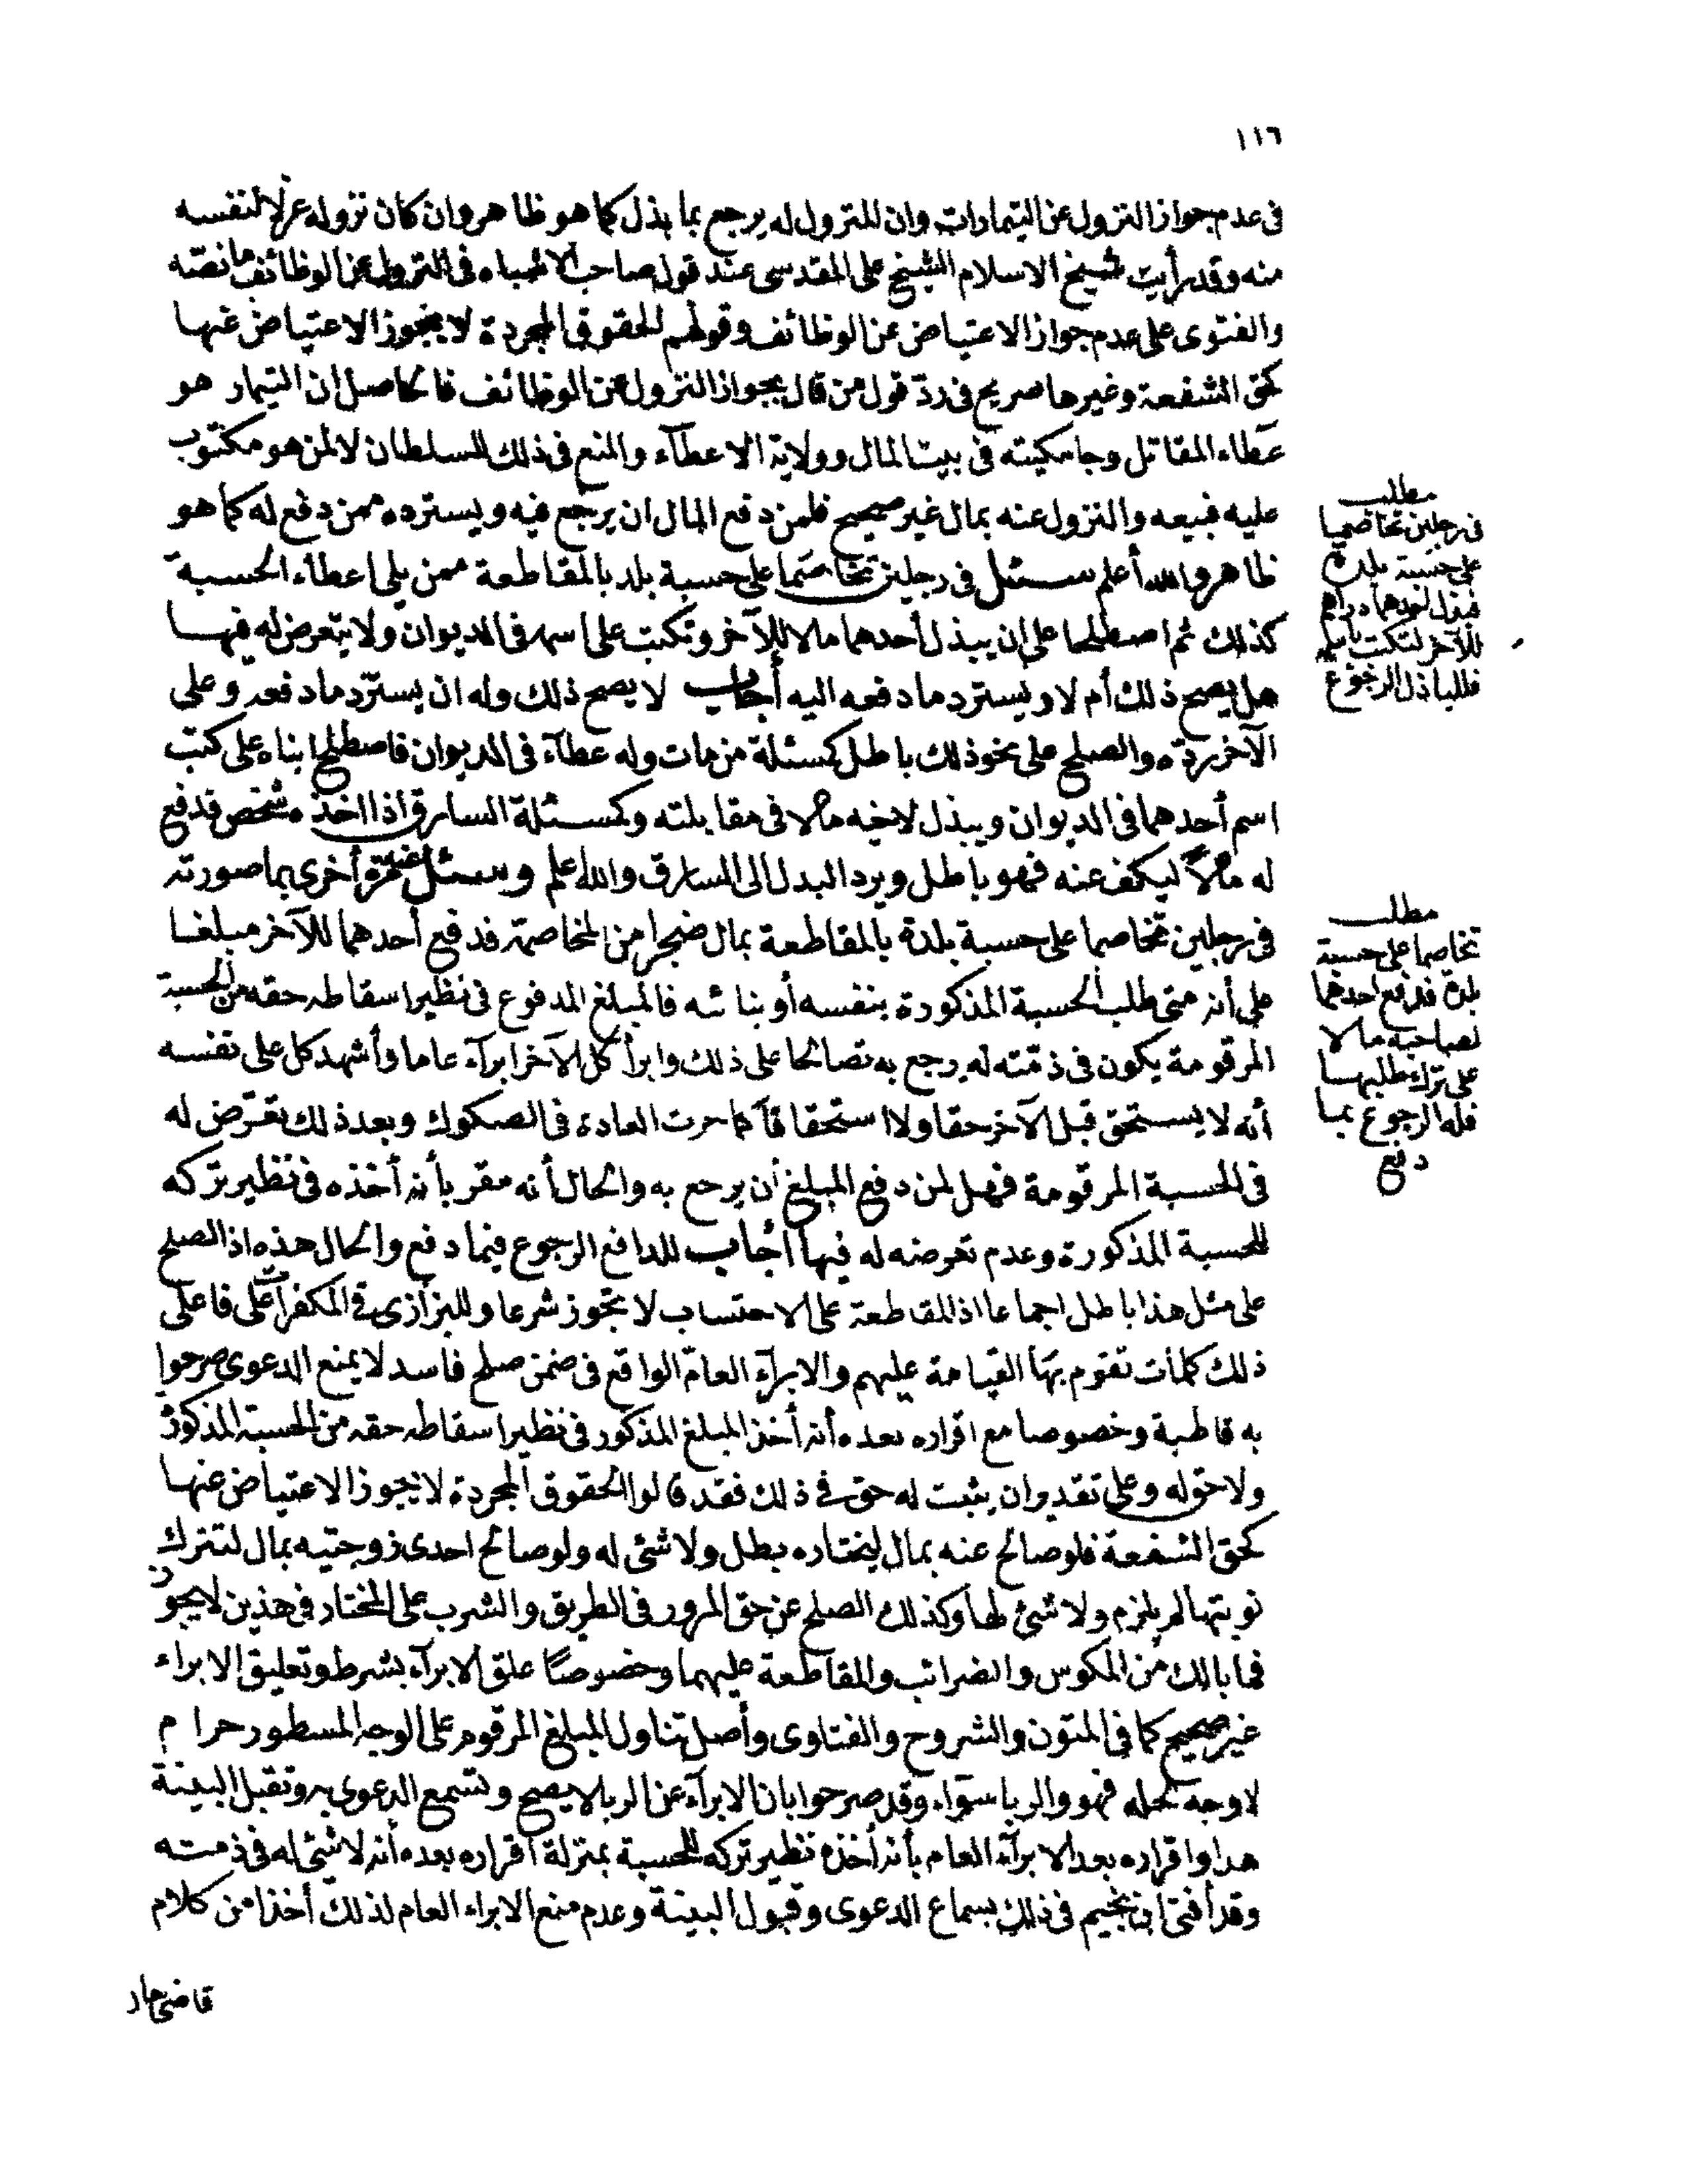 ١١٦
فى عدم جواز النزول عن التيمارات وان للمنزول له يرجع بما بذل كما هو ظاهر وان كان نزوله عزلا لنفسه
منه وقد رأيت شيخ الاسلام الشيخ على المقدسى عند قول صاحب الاشباه فى النزول عن الوظائف ما نصّه
والفتوى على عدم جواز الاعتياض عن الوظائف وقولهم الحقوق المجردة لا يجوز الاعتياض عنها
كحق الشفعة وغيرها صريح فى ردّ قول من قال بجواز النزول عن الوظائف فالحاصل ان التيمار هو
عطاء المقاتل وجامكيته فى بيت المال وولاية الاعطآء والمنع فى ذلك للسلطان لا لمن هو مكتوب
عليه فبيعه والنزول عنه بمال غير صحيح فلمن دفع المال ان يرجع فيه ويسترده ممن دفع له كما هو
ظاهر والله أعلم سئل فى رجلين تخاصما على حسبة بلد بالمقاطعة ممن يلى اعطاء الحسبة
كذلك ثم اصطلحا على ان يبذل أحدهما مالا للآخر وتكتب على اسمه فى الديوان ولا يتعرض له فيها
هل يصح ذلك أم لا ويسترد ما دفعه اليه أجاب لا يصح ذلك وله ان يستردّ ما دفعه وعلى
الآخر ردّه والصلح على نحو ذلك باطل كمسئلة من مات وله عطآء فى الديوان فاصطلحا بناء على كتب
اسم أحدهما فى الديوان ويبذل لاخيه مالا فى مقابلته وكمسئلة السارق اذا اخذه شخص فدفع
له مالاً ليكف عنه فهو باطل ويرد البدل الى السارق والله اعلم وسئل عنه مرة أخرى بما صورته
فى رجلين تخاصما على حسبة بلدة بالمقاطعة بمال ضجرا من المخاصمة فدفع أحدهما للآخر مبلغا
على أنه متى طلب الحسبة المذكورة بنفسه أو بنائبه فالمبلغ المدفوع فى نظير اسقاطه حقه من الحسبة
المرقومة يكون فى ذمّته له يرجع به تصالحا على ذلك وابرأ كل الآخر ابرآء عاما وأشهد كل على نفسه
أنه لا يستحق قبل الآخر حقا ولا استحقاقا كما جرت العادة فى الصكوك وبعد ذلك تعرّض له
فى الحسبة المرقومة فهل لمن دفع المبلغ أن يرجع به والحال أنه مقر بأنه أخذه فى نظير تركه
للحسبة المذكورة وعدم تعرضه له فيها أجاب للدافع الرجوع فيما دفع والحال هذه اذ الصلح
على مثل هذا باطل اجماعا اذ المقاطعة على الاحتساب لا تجوز شرعا وللبزازى فى المكفرات على فاعلى
ذلك كلمات تقوم بها القيامة عليهم والابرآء العامّ الواقع فى ضمن صلح فاسد لا يمنع الدعوى صرحوا
به قاطبة وخصوصا مع اقراره بعده أنه أخذ المبلغ المذكور فى نظير اسقاطه حقه من الحسبة المذكورة
ولا حق له وعلى تقدير ان يثبت له حق فى ذلك فقد قالوا الحقوق المجردة لا يجوز الاعتياض عنها
كحق الشفعة فلو صالح عنه بمال ليختاره بطل ولا شئ له ولو صالح احدى زوجتيه بمال لتترك
نوبتها لم يلزم ولا شئ لها وكذلك الصلح عن حق المرور فى الطريق والشرب على المختار فى هذين لا يجوز
فما بالك من المكوس والضرائب والمقاطعة عليهما وخصوصا علق الابرآء بشرط وتعليق الابراء
غير صحيح كما فى المتون والشروح والفتاوى وأصل تناول المبلغ المرقوم على الوجه المسطور حرام
لا وجه لحله فهو والربا سواء وقد صرحوا بان الابرآء عن الربا لا يصح وتسمع الدعوى به وتقبل البينة
هذا واقراره بعد الابرآء العام بأنه أخذه نظير تركه للحسبة بمنزلة اقراره بعده أنه لا شئ له فى ذمته
وقد أفتى ابن نجيم فى ذلك بسماع الدعوى وقبول البينة وعدم منع الابراء العام لذلك أخذا من كلام
قاضيخان
مطلب
فى رجلين تخاصما
على حسبة بلدة
فبذل احدهما دراهم
للآخر لتكتب باسمه
فللباذل الرجوع
مطلب
تخاصما على حسبة
بلدة فدفع احدهما
لصاحبه مالا
على ترك طلبها
فله الرجوع بما
دفع